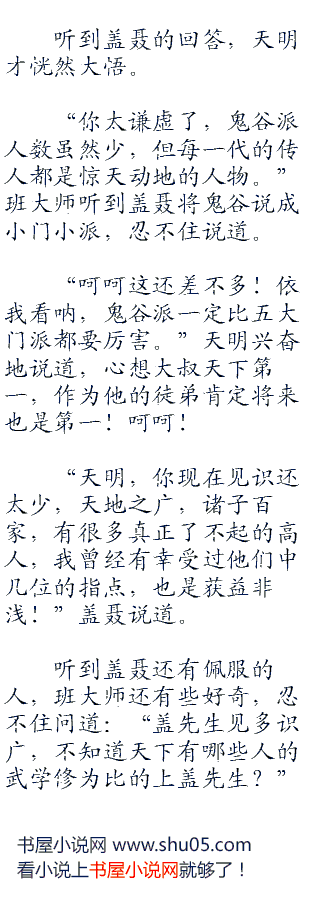 听到盖聂的回答，天明
才恍然大悟。
“你太谦虚了，鬼谷派
人数虽然少，但每一代的传
人都是惊天动地的人物。”
班大师听到盖聂将鬼谷说成
小门小派，忍不住说道。
“呵呵这还差不多！依
我看呐，鬼谷派一定比五大
门派都要厉害。”天明兴奋
地说道，心想大叔天下第
一，作为他的徒弟肯定将来
也是第一！呵呵！
“天明，你现在见识还
太少，天地之广，诸子百
家，有很多真正了不起的高
人，我曾经有幸受过他们中
几位的指点，也是获益非
浅！”盖聂说道。
听到盖聂还有佩服的
人，班大师还有些好奇，忍
不住问道：“盖先生见多识
广，不知道天下有哪些人的
武学修为比的上盖先生？”
书屋小说网 www.shu05.com
看小说上书屋小说网就够了！